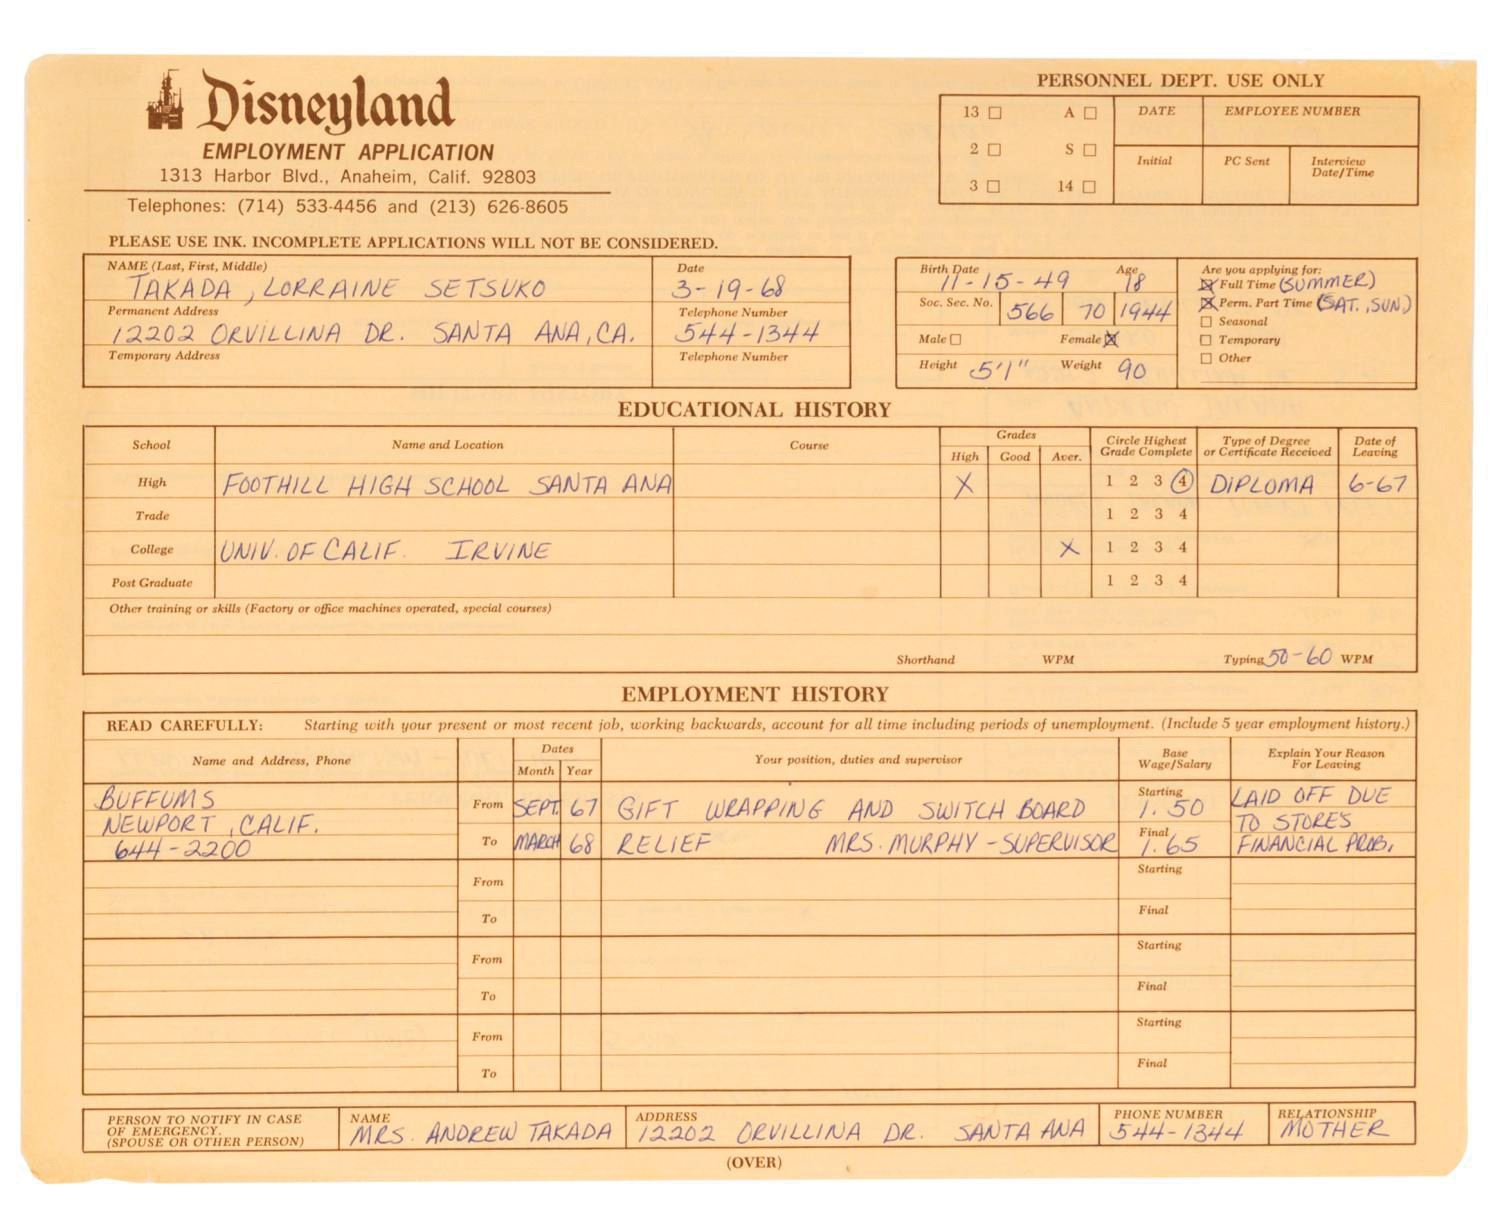 Disneyland
EMPLOYMENT APPLICATION
1313 Harbor Blvd., Anaheim, Calif. 92803
Telephones: (714) 533-4456 and (213) 626-8605
PERSONNEL DEPT. USE ONLY
13 A DATE EMPLOYEE NUMBER
2 S Initial PC Sent Interview Date/Time
3 14
PLEASE USE INK. INCOMPLETE APPLICATIONS WILL NOT BE CONSIDERED.
NAME (Last, First, Middle) Date
TAKADA, LORRAINE SETSUKO 3-19-68
Permanent Address Telephone Number
12202 ORVILLINA DR. SANTA ANA, CA. 544-1344
Temporary Address Telephone Number
Birth Date 11-15-49 Age 18
Soc. Sec. No. 566 70 1944
Male Female X
Height 5'1" Weight 90
Are you applying for:
X Full Time (SUMMER)
X Perm. Part Time (SAT., SUN.)
Seasonal
Temporary
Other
EDUCATIONAL HISTORY
School Name and Location Course Grades Circle Highest Grade Complete Type of Degree or Certificate Received Date of Leaving
High Good Aver.
High FOOTHILL HIGH SCHOOL SANTA ANA X 1 2 3 4 DIPLOMA 6-67
Trade 1 2 3 4
College UNIV. OF CALIF. IRVINE X 1 2 3 4
Post Graduate 1 2 3 4
Other training or skills (Factory or office machines operated, special courses)
Shorthand WPM Typing 50-60 WPM
EMPLOYMENT HISTORY
READ CAREFULLY: Starting with your present or most recent job, working backwards, account for all time including periods of unemployment. (Include 5 year employment history.)
Name and Address, Phone Dates Month Year Your position, duties and supervisor Base Wage/Salary Explain Your Reason For Leaving
BUFFUMS From SEPT. 67 GIFT WRAPPING AND SWITCH BOARD Starting 1.50 LAID OFF DUE
NEWPORT, CALIF. TO STORES
644-2200 To MARCH 68 RELIEF MRS. MURPHY - SUPERVISOR Final 1.65 FINANCIAL PROB.
From Starting
To Final
From Starting
To Final
From Starting
To Final
PERSON TO NOTIFY IN CASE OF EMERGENCY. (SPOUSE OR OTHER PERSON) NAME ADDRESS PHONE NUMBER RELATIONSHIP
MRS. ANDREW TAKADA 12202 ORVILLINA DR. SANTA ANA 544-1344 MOTHER
(OVER)